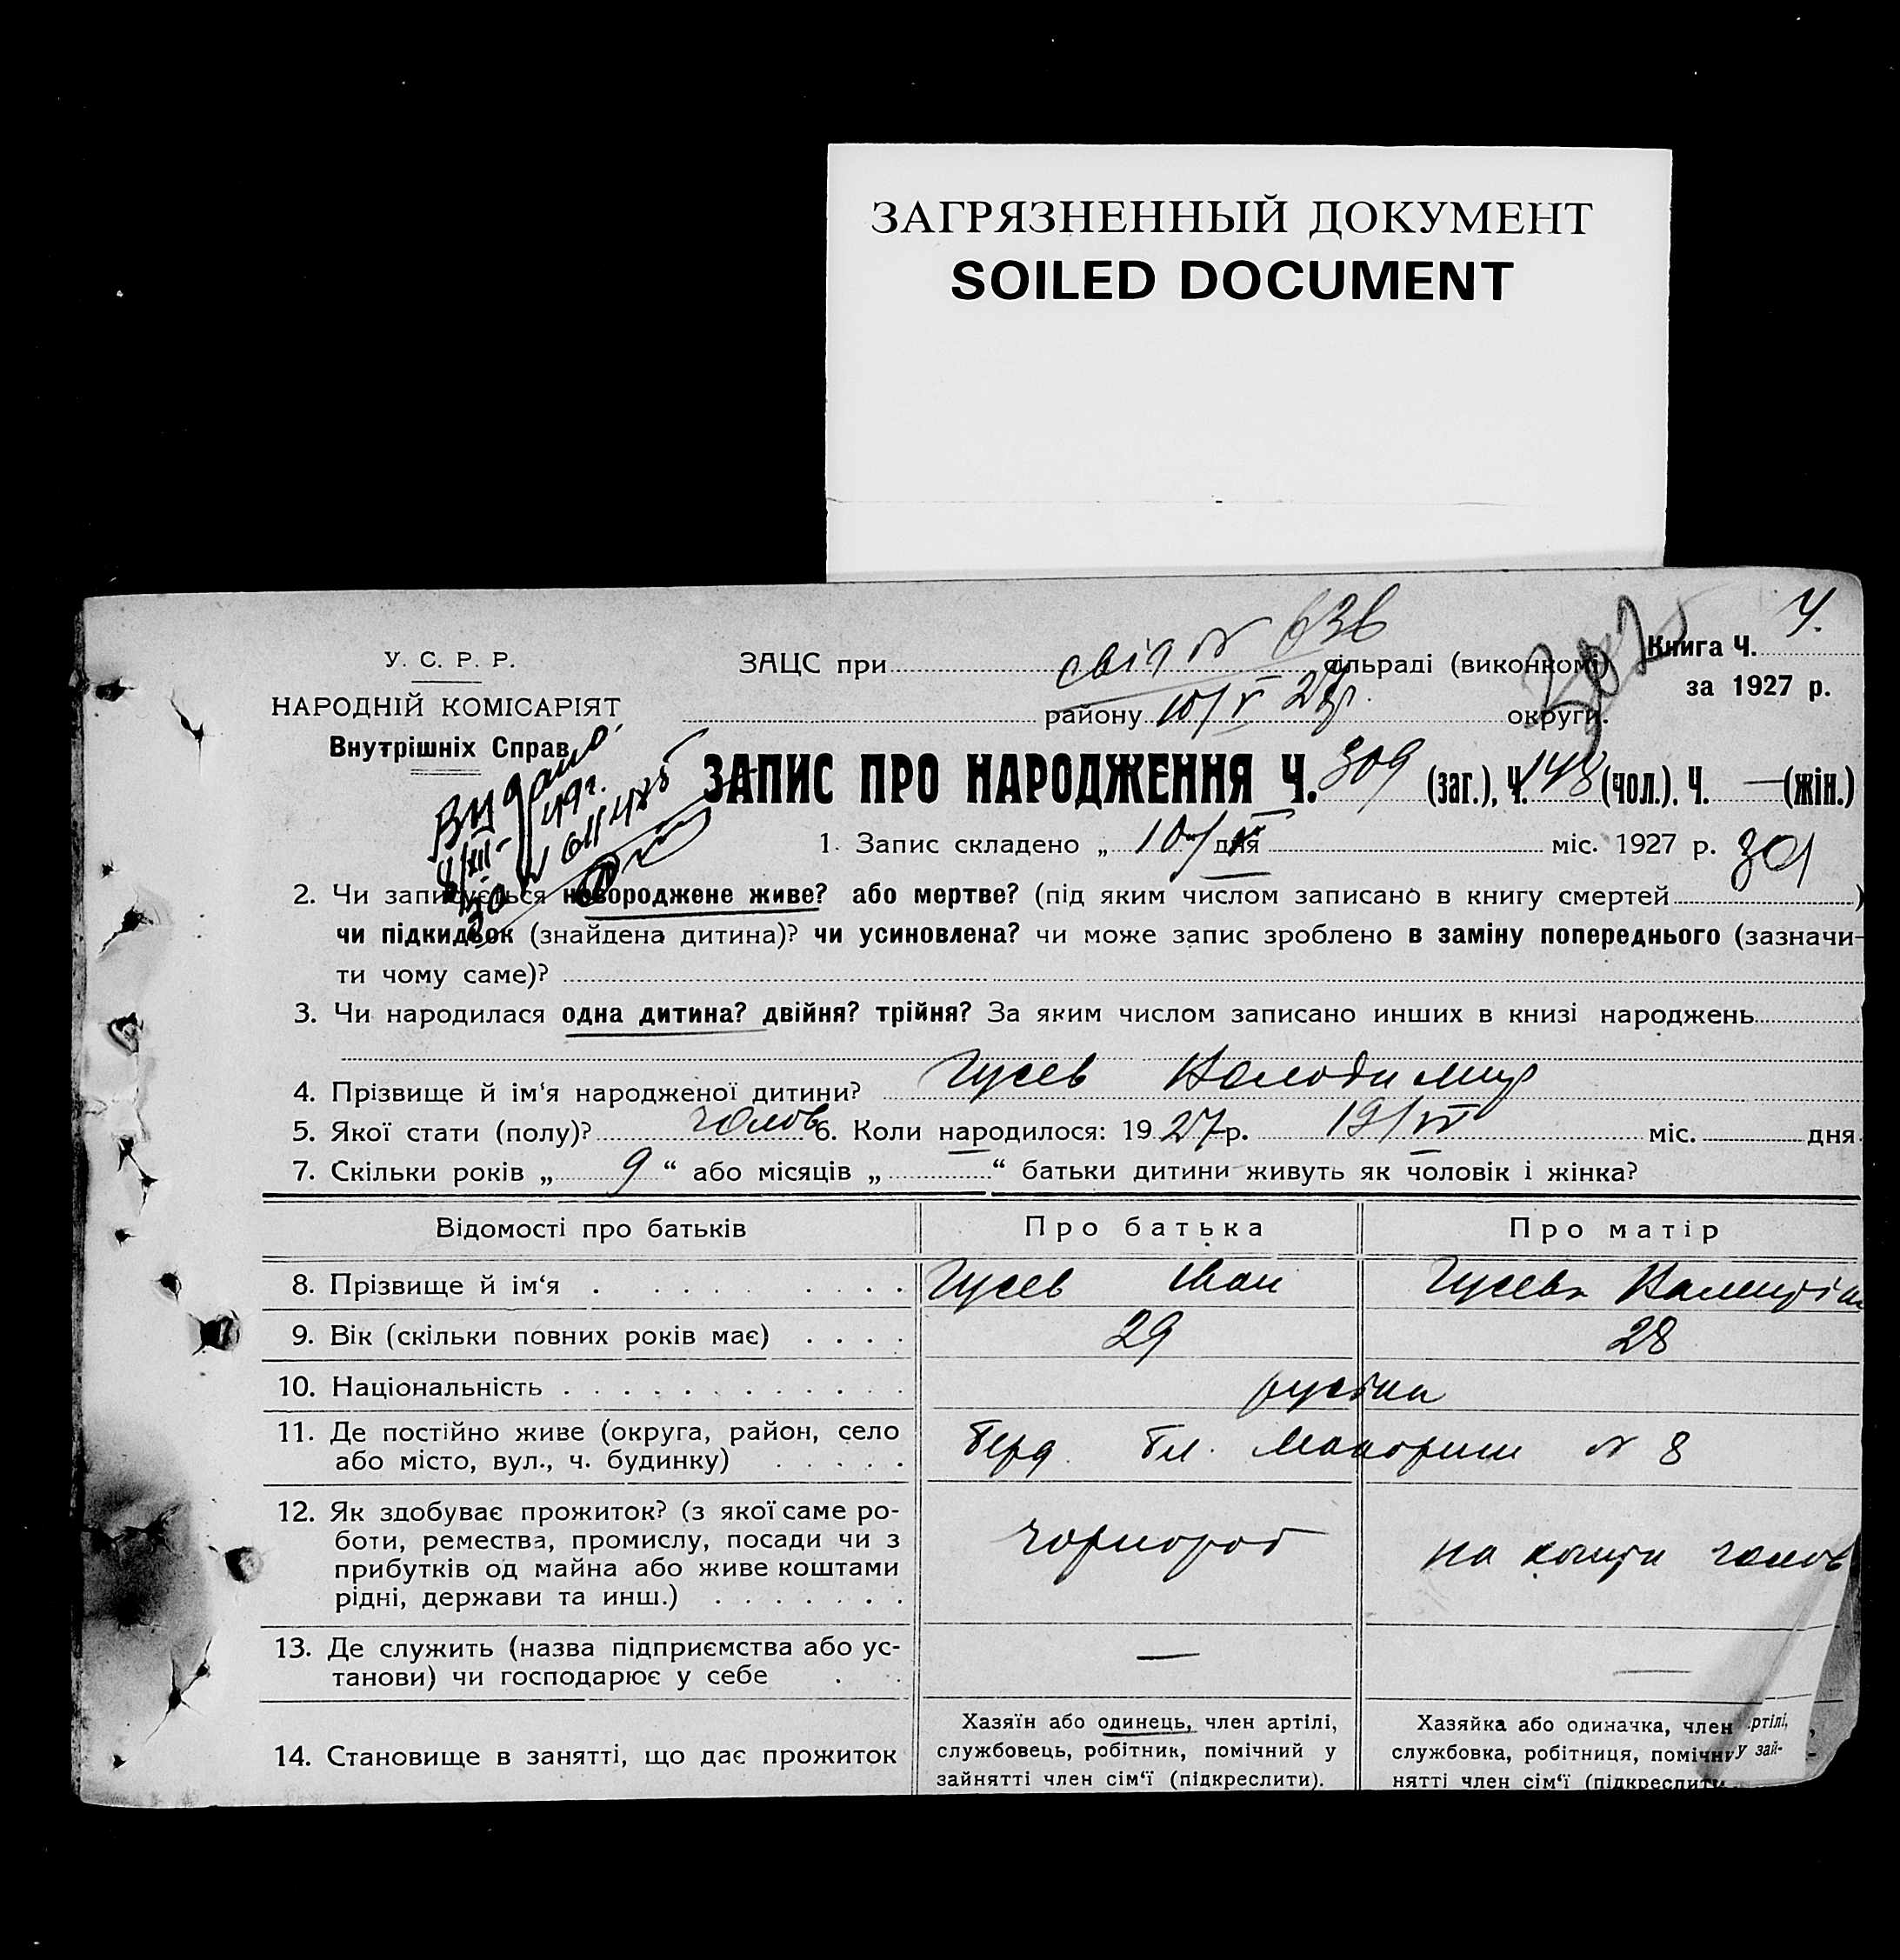 ЗАГРЯЗНЕННЫЙ ДОКУМЕНТ
SOILED DOCUMENT
У. С. Р. Р.
НАРОДНІЙ КОМІСАРІЯТ
Внутрішніх Справ
ЗАЦС при сільраді (виконкомі)
району округи.
Книга Ч.
за 1927 р.
Видано
ЗАПИС ПРО НАРОДЖЕННЯ Ч. 309 (заг.), Ч. 148 (чол.). Ч. — (жін.)
1. Запис складено „ 10 дня міс. 1927 р. 301
2. Чи записується новороджене живе? або мертве? (під яким числом записано в книгу смертей )
чи підкидьок (знайдена дитина)? чи усиновлена? чи може запис зроблено в заміну попереднього (зазначи-
ти чому саме)?
3. Чи народилася одна дитина? двійня? трійня? За яким числом записано инших в книзі народжень
4. Прізвище й ім‘я народженої дитини? Гусев Володимир
5. Якої стати (полу)? чолов 6. Коли народилося: 1927 р. міс. дня
7. Скільки років „ 9 “ або місяців „ “ батьки дитини живуть як чоловік і жінка?
Відомості про батьків Про батька Про матір
8. Прізвище й ім‘я Гусев Іван Гусева
9. Вік (скільки повних років має) 29 28
10. Національність
11. Де постійно живе (округа, район, село
або місто, вул., ч. будинку) № 8
12. Як здобуває прожиток? (з якої саме ро-
боти, ремества, промислу, посади чи з
прибутків од майна або живе коштами
рідні, держави та инш.) чорнороб на кошти чолов
13. Де служить (назва підприємства або ус-
танови) чи господарює у себе — —
14. Становище в занятті, що дає прожиток
Хазяїн або одинець, член артілі,
службовець, робітник, помічний у
зайнятті член сім‘ї (підкреслити).
Хазяйка або одиначка, член артілі,
службовка, робітниця, помічн у зай-
нятті член сім‘ї (підкреслити